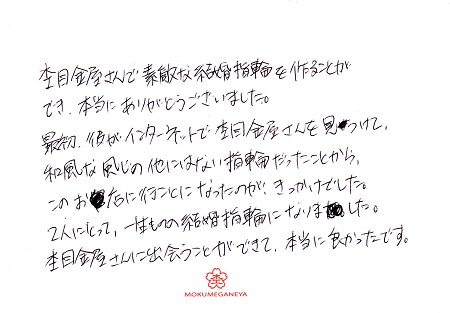 杢目金屋さんで素敵な結婚指輪を作ることが
でき、本当にありがとうございました。
最初、彼がインターネットで杢目金屋さんを見つけて、
和風な感じの他にはない指輪だったことから、
このお店に行くことになったのが、きっかけでした。
2人にとって、一生ものの結婚指輪になりました。
杢目金屋さんに出会うことができて、本当に良かったです。
杢
MOKUMEGANEYA